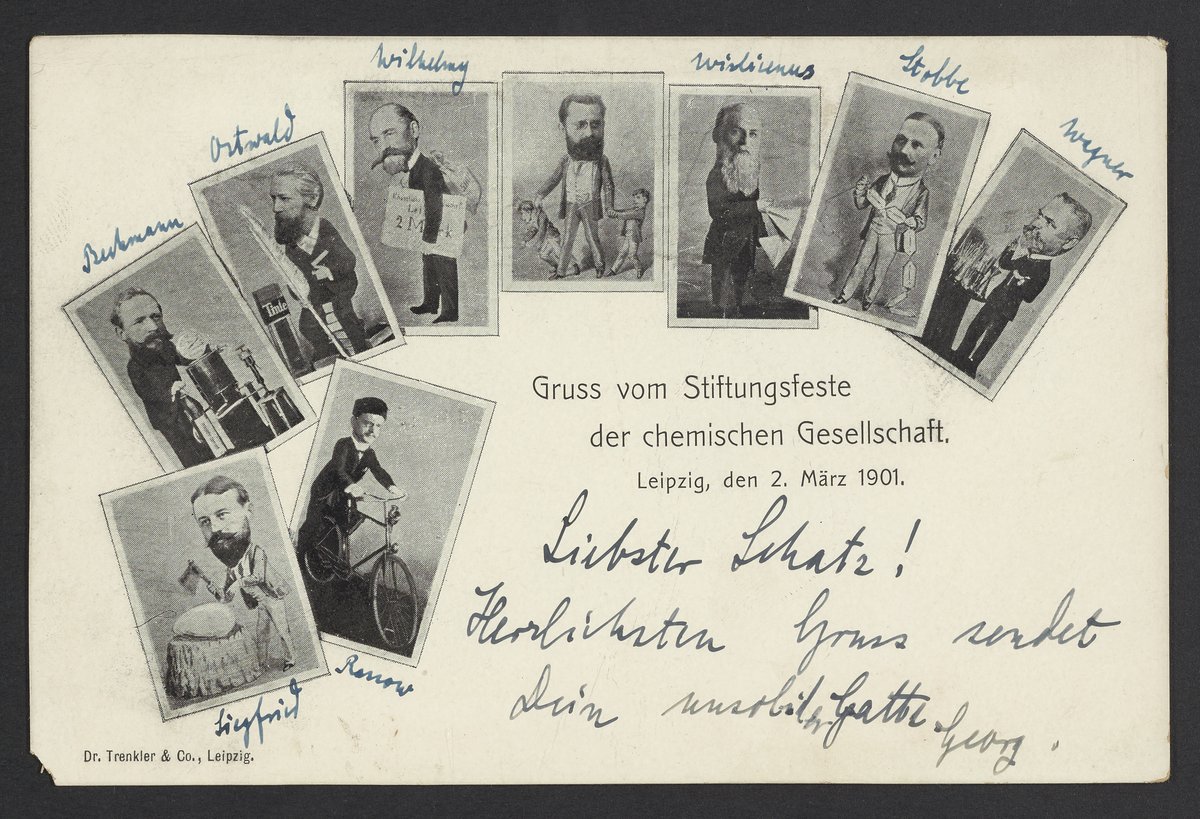 Wilhelmy
Wislicenus
Stobbe
Wagner
Ostwald
Beckmann
Tinte
2 Mark
Gruss vom Stiftungsfeste
der chemischen Gesellschaft.
Leipzig, den 2. März 1901.
Liebster Schatz!
Herzlichsten Gruss sendet
Dein Gatte
Georg.
Rassow
Siegfried
Dr. Trenkler & Co., Leipzig.